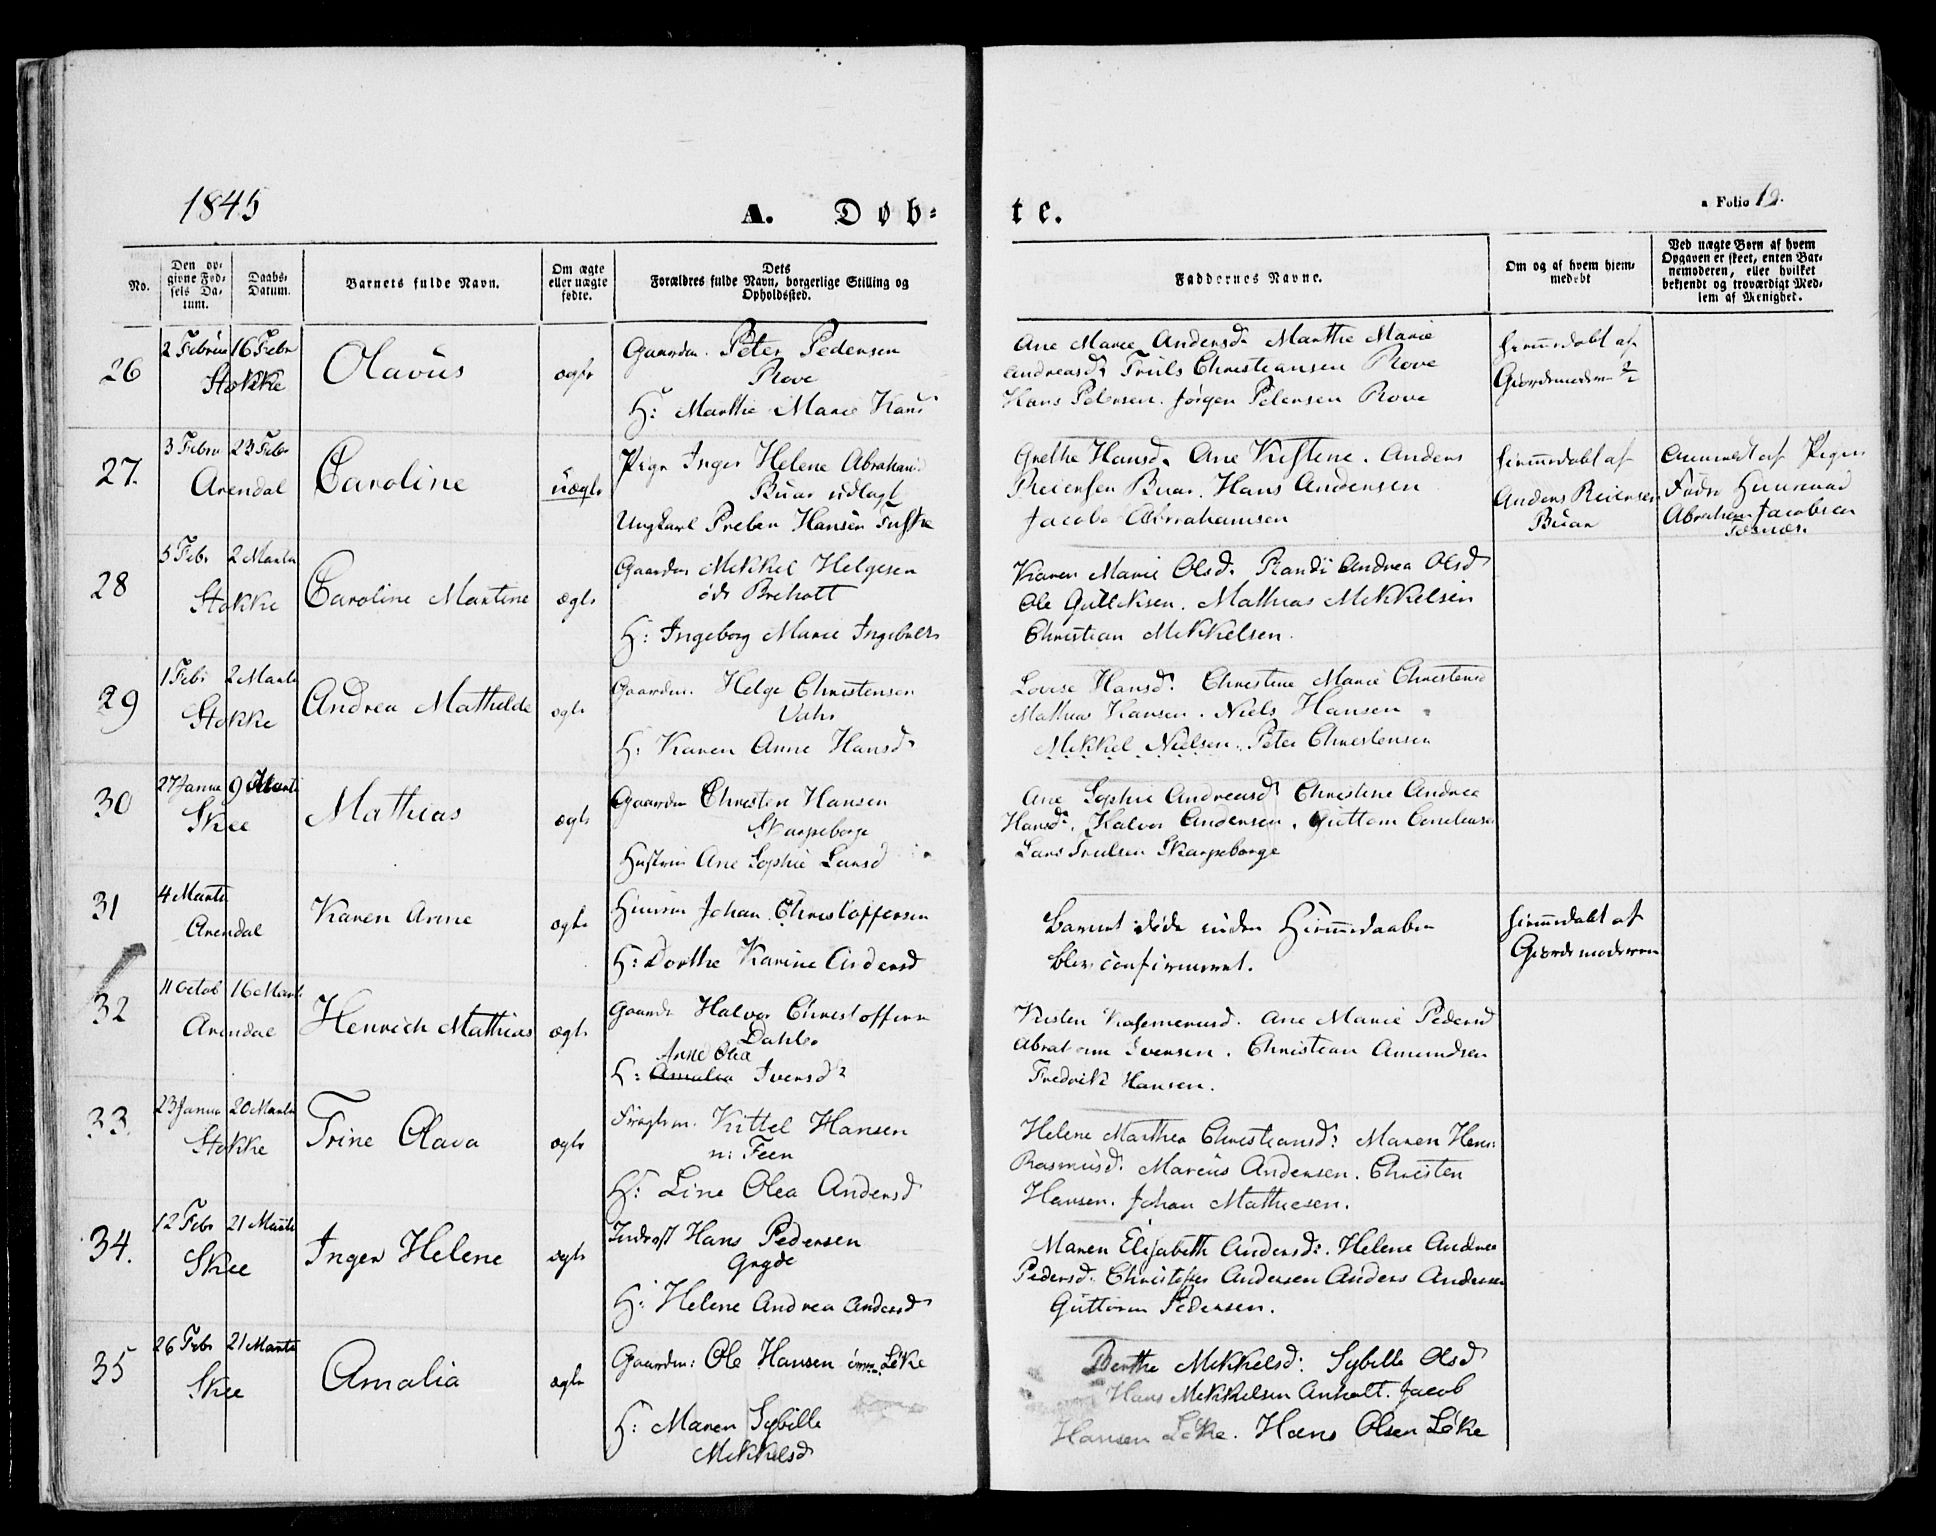 1845
A. Døb-
te.
a Folio 12.
No.
Den op-
givne Fød-
sels Da-
tum.
Daabs-
Datum.
Barnets fulde Navn.
Om ægte
eller uægte
fødte.
Dets
Forældres fulde Navn, borgerlige Stilling og
Opholdssted.
Faddernes Navne.
Om og af hvem hjem-
medøbt
Ved uægte Børn af hvem
Opgaven er skeet, enten Bar-
nemoderen, eller hvilket
bekjendt og troværdigt Med-
lem af Menighet.
26
2 Februa 16 Febr
Stokke
Olavus
ægte
Gaardm. Peter Pedersen
Rove
H: Marthe Marie Hans
Ane Marie Andersd. Marthe Marie
Andreasd: Truls Christiansen Rove
Hans Pedersen. Jørgen Pedersen Rove
hiemmedøbt af
Giordemodern
27.
3 Febru 23 Febr
Arendal
Caroline
uægte
Pige Inger Helene Abraham
Buar udlagt
Ungkarl Preben Hansen
Grethe Hansd. Ane Kirstine. Anders
Reiersen Buar. Hans Andersen
Jacob Abrahamsen
hiemmedøbt af
Anders Reiersen
Buar
Anmeldt af Pigens
Fader Huusmand
Abraham Jacobsen
28
5 Febr 2 Marts
Stokke
Caroline Martine
ægte
Gaardm Mikkel Helgesen
øde Breholt
H: Ingeborg Marie Ingebrets
Karen Marie Olsd. Randi Andrea Olsd
Ole Gulliksen. Mathias Mikkelsen
Christian Mikkelsen.
29
1 Febr 2 Marts
Stokke
Andrea Mathilde
ægte
Gaardm. Helge Christensen
H: Karen Anne Hansd
Lovise Hansd: Christine Marie Christens
Mathias Hansen. Niels Hansen
Mikkel Nielsen. Peter Christensen
30
27 Janua 9 Marts
Skee
Mathias
ægte
Gaardm Christen Hansen
Skarpeborge
Hustru Ane Sophie Larsd
Ane Sophie Andreasd Christine Andrea
Hansd. Halvor Andersen. Guttorm
Lars Trulsen Skarpeborge
31
4 Marts
Arendal
Karen Anne
ægte
Huusm Johan Christoffersen
H: Dorthe Karine Andersd
Barnet døde inden Hiemmedaaben
blev confirmeret.
hiemmedøbt af
Giordemoderen
32
11 Octob 16 Marts
Arendal
Henrich Mathias
ægte
Gaardm Halvor Christoffersen
Dahl.
Anne Olea
H: Amalia Iversd
Kirsten Rasmusd. Ane Marie Pedersd
Abraham Iversen. Christian Amundsen
Fredrik Hansen.
33.
23 Janua 20 Marts
Stokke
Trine Olava
ægte
Kittel Hansen
n: Feen
H: Line Olea Andersd
Helene Marthea Christiansd: Maren
Rasmusd. Marcus Andersen. Christen
Hansen. Johan Mathiesen.
34.
12 Febr 21 Marts
Skee
Inger Helene
ægte
Inderst Hans Pedersen
Gryde
H: Helene Andrea Andersd
Maren Elisabeth Andersd:. Helene Andrea
Pedersd: Christoffer Andersen Anders Andersen
Guttorm Pedersen.
35
26 Febr 21 Marts
Skee
Amalia
ægte
Gaardm: Ole Hansen Løke
H: Maren Sybille
Mikkelsd
Berthe Mikkelsd: Sybille Olsd
Hans Mikkelsen Anholt. Jacob
Hansen Løke. Hans Olsen Løke